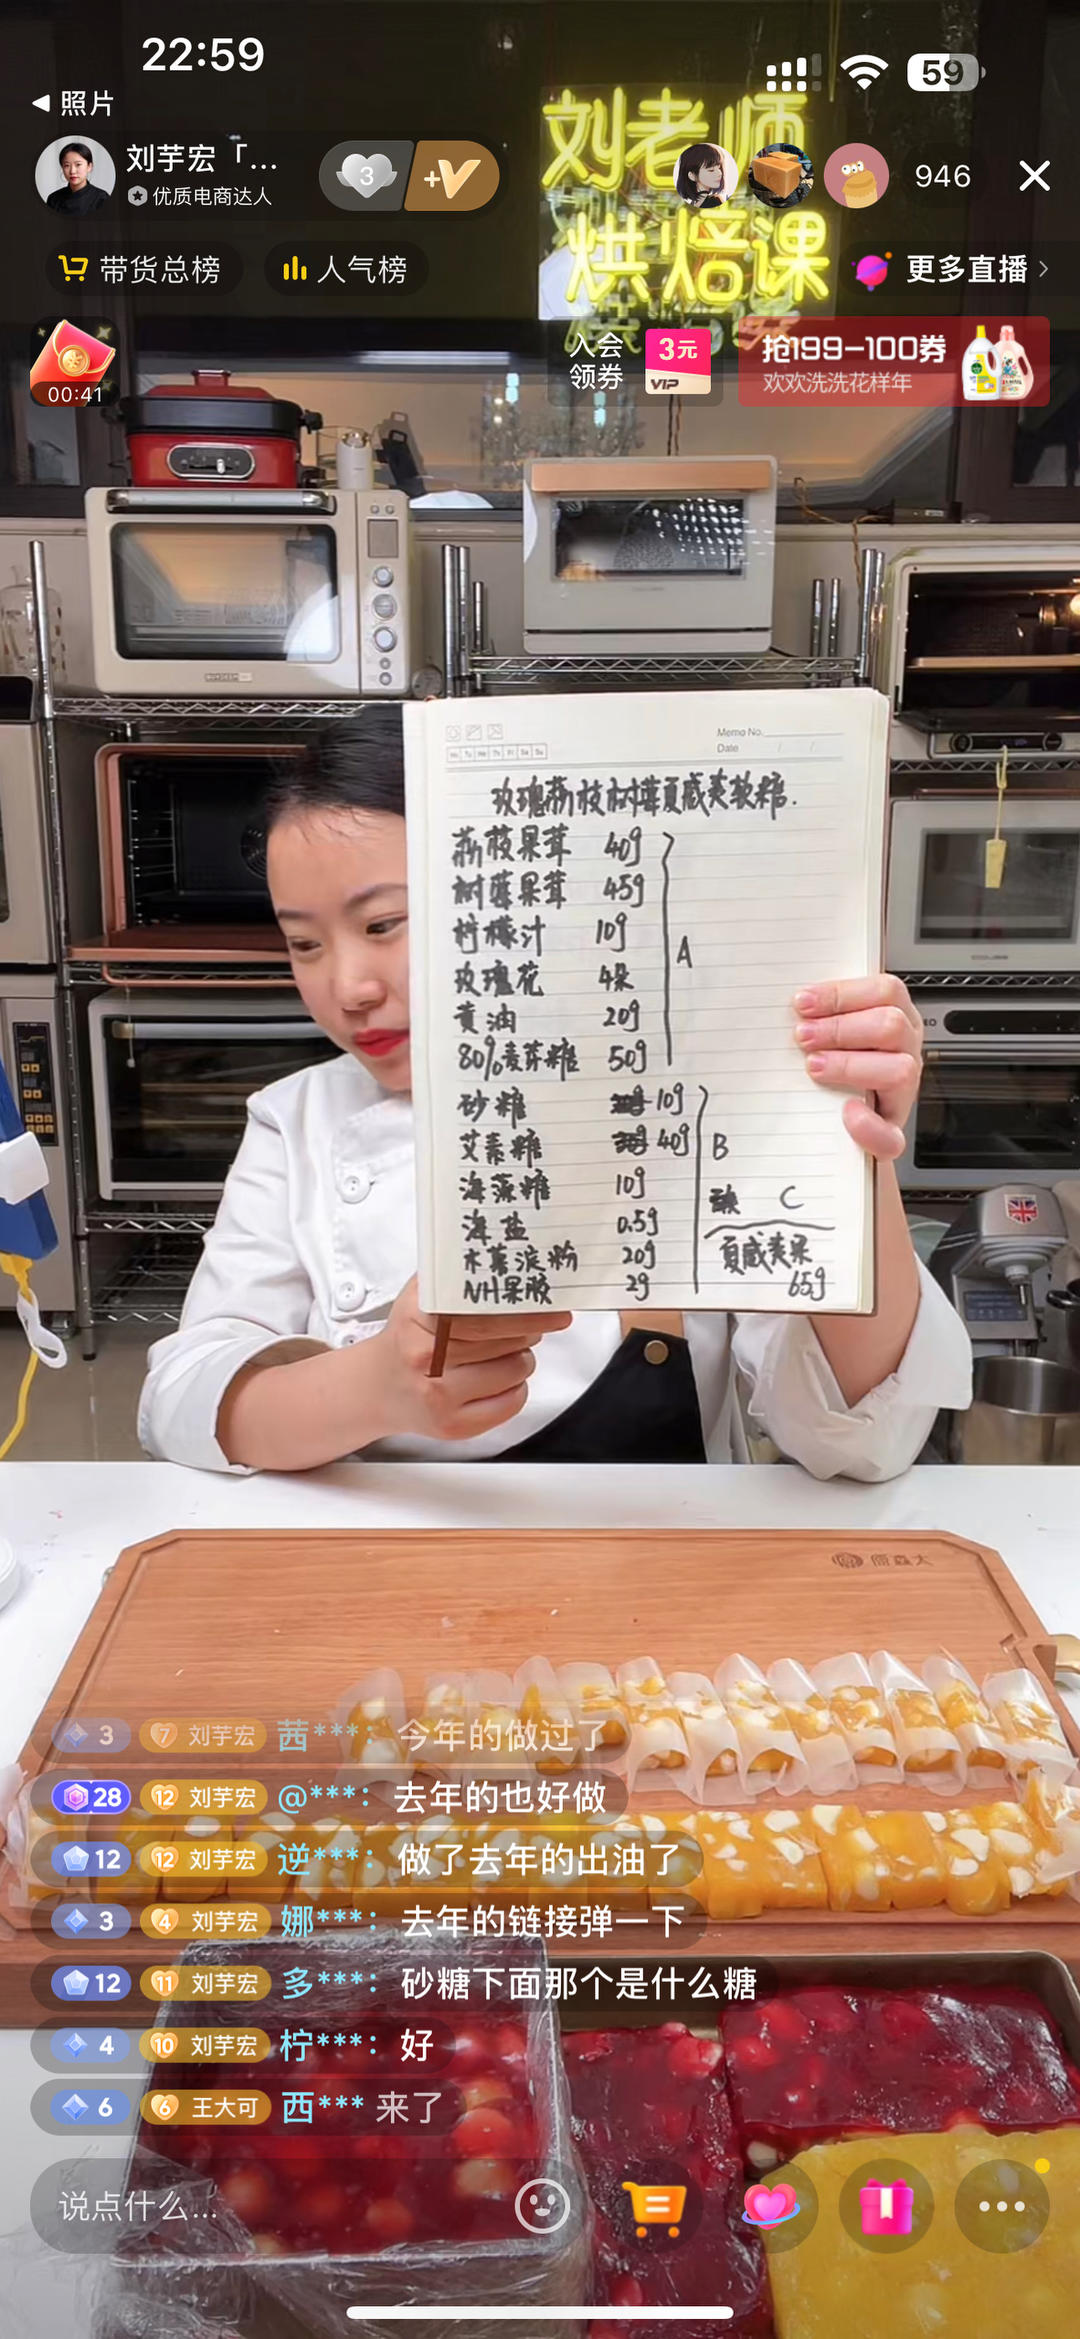 22:59
59
照片
刘老师
刘芋宏「...
优质电商达人
3
+V
946
烘焙课
带货总榜
人气榜
更多直播
00:41
入会
领券
3元
VIP
抢199-100券
欢欢洗洗花样年
Memo No.
Date / /
Mo Tu We Th Fr Sa Su
玫瑰荔枝树莓夏威夷软糖.
荔枝果茸 40g
树莓果茸 45g
柠檬汁 10g
玫瑰花 4朵
黄油 20g
80%麦芽糖 50g
A
砂糖 10g
艾素糖 40g
海藻糖 10g
海盐 0.5g
木薯淀粉 20g
NH果胶 2g
B
C
夏威夷果
65g
原森太
3 7 刘芋宏 茜***：今年的做过了
28 12 刘芋宏 @***：去年的也好做
12 12 刘芋宏 逆***：做了去年的出油了
3 4 刘芋宏 娜***：去年的链接弹一下
12 11 刘芋宏 多***：砂糖下面那个是什么糖
4 10 刘芋宏 柠***：好
6 6 王大可 西*** 来了
说点什么...